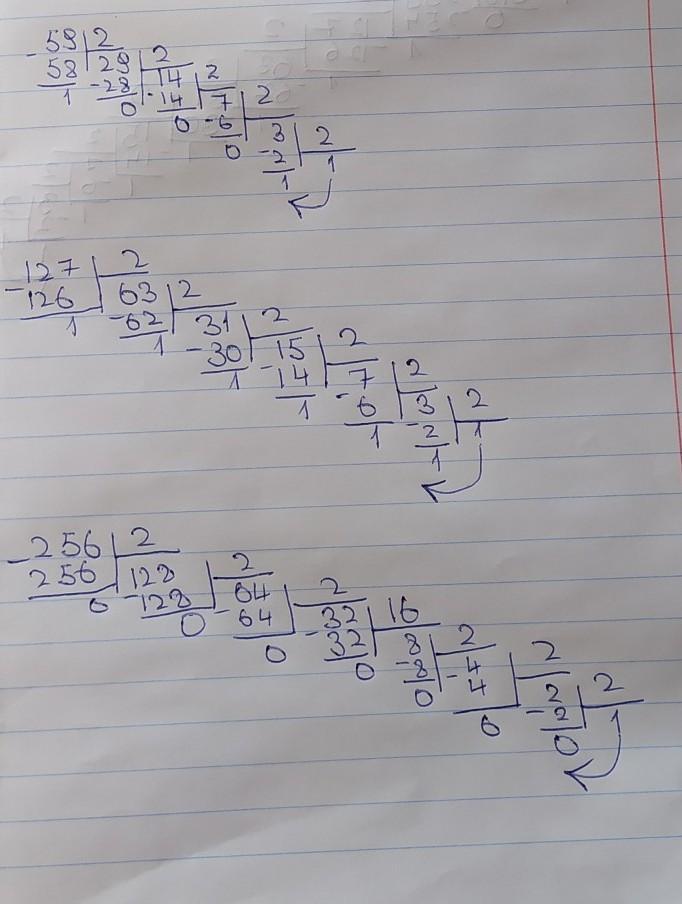 - 59 2
58 29 2
1 - 28 14 2
0 - 14 7 2
0 - 6 3 2
0 - 2 1
1
- 127 2
126 63 2
1 - 62 31 2
1 - 30 15 2
1 - 14 7 2
1 - 6 3 2
1 - 2 1
1
- 256 2
256 128 2
0 - 128 64 2
0 - 64 32 16
0 - 32 8 2
0 - 8 4 2
0 - 4 2 2
0 - 2 1
0